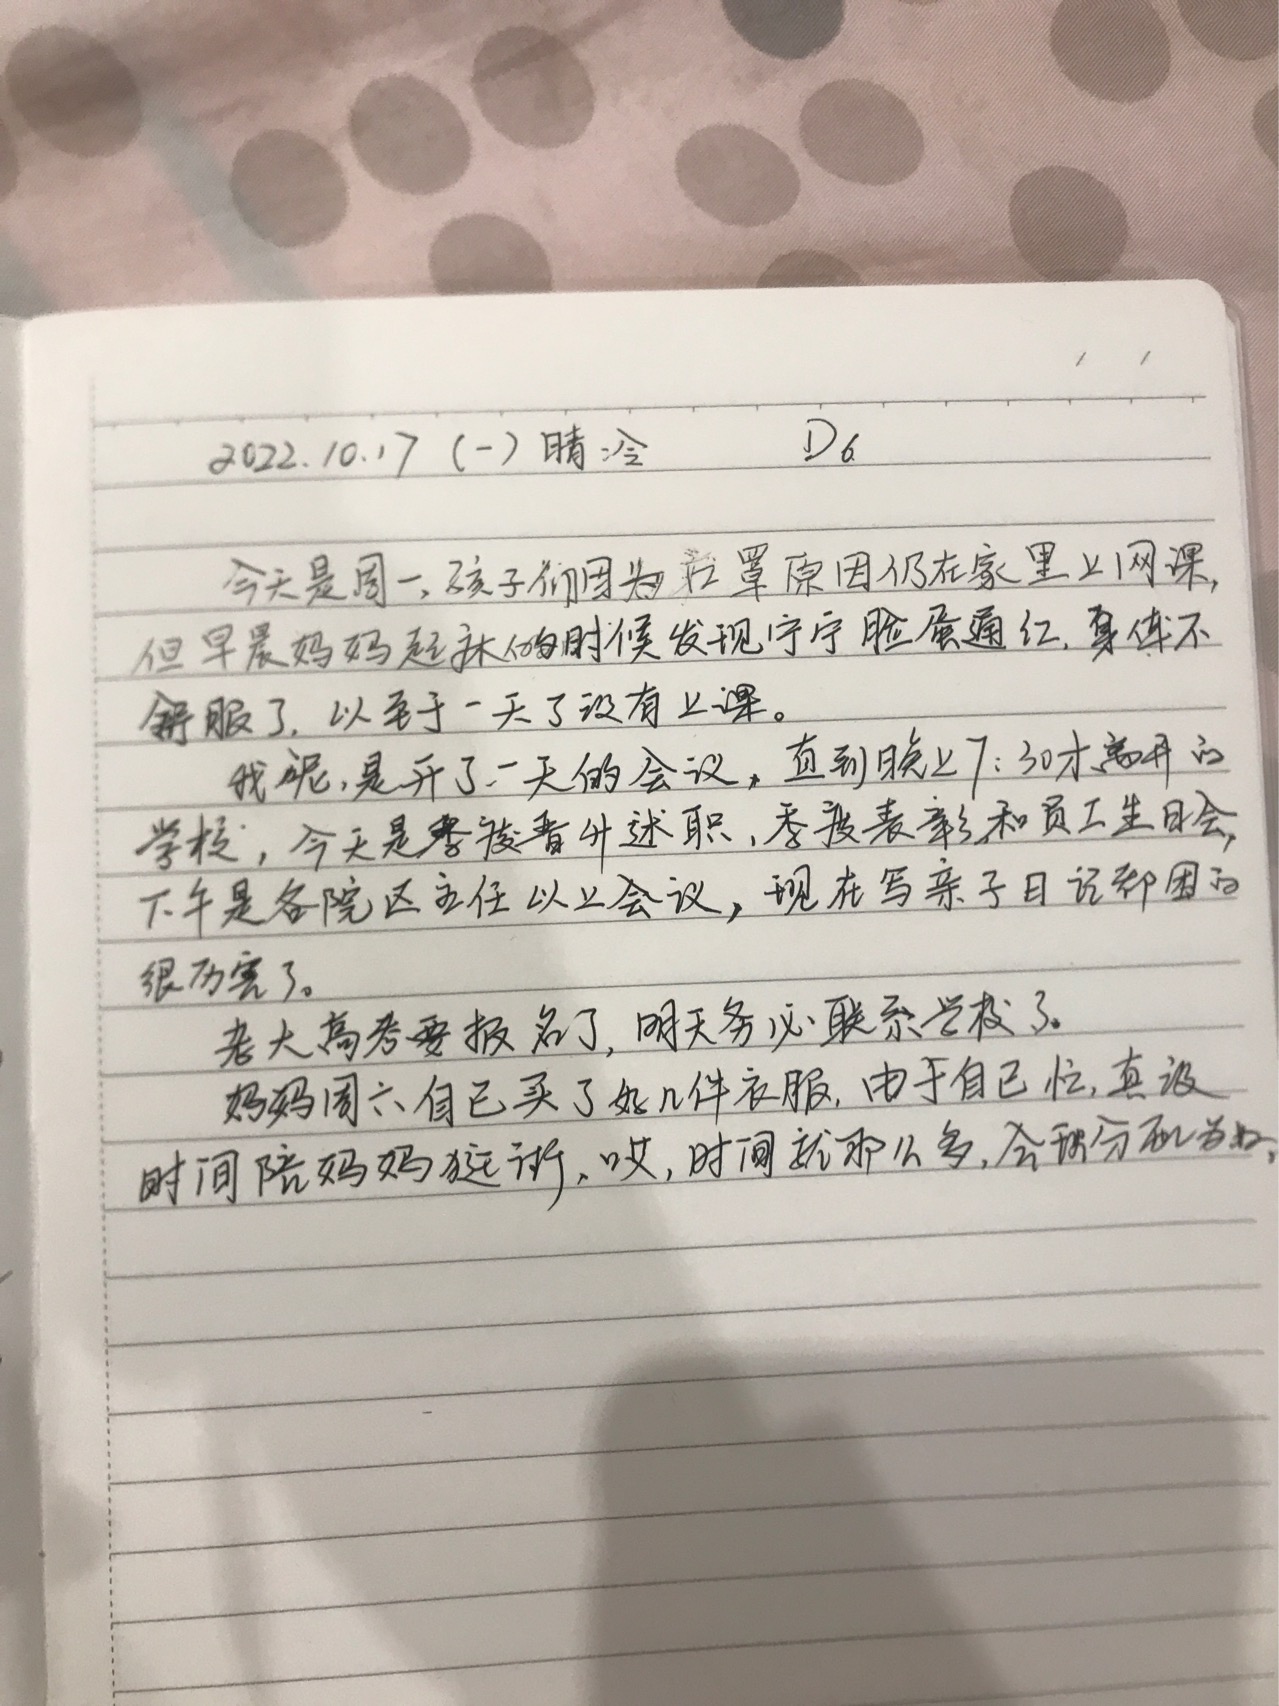 2022.10.17 (一) 晴 冷 D6
今天是周一、孩子们因为口罩原因仍在家里上网课,
但早晨妈妈起床的时候发现宁宁脸蛋通红, 身体不
舒服了, 以至于一天了没有上课。
我呢, 是开了一天的会议, 直到晚上7:30才离开的
学校, 今天是季度晋升述职、季度表彰和员工生日会,
下午是各院区主任以上会议, 现在写亲子日记都困的
很厉害了。
老大高考要报名了, 明天务必联系学校了。
妈妈周六自己买了好几件衣服, 由于自己忙, 真没
时间陪妈妈逛街、哎, 时间就那么多, 合理分配为好,